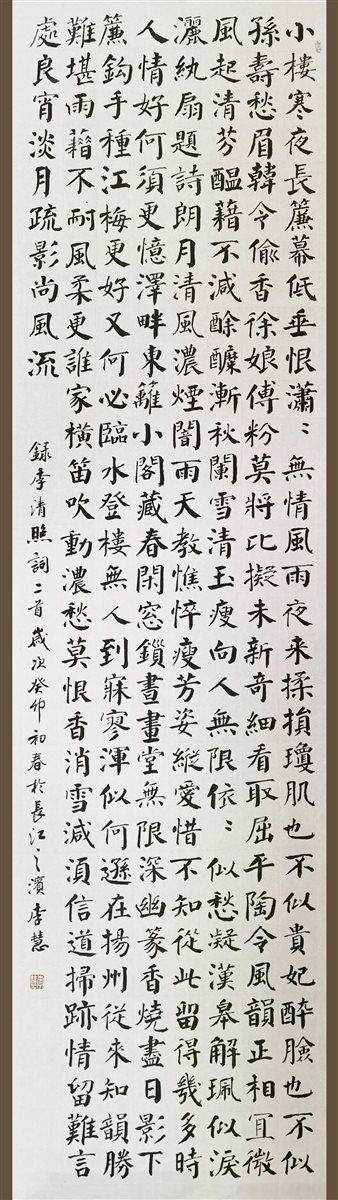 小樓寒夜長簾幕低垂恨瀟〻無情風雨夜來揉損瓊肌也不似貴妃醉臉也不似
孫壽愁眉韓令偷香徐娘傅粉莫將比擬未新奇細看取屈平陶令風韻正相宜微
風起清芬醞藉不減酴醾漸秋闌雪清玉瘦向人無限依〻似愁凝漢皋解珮似淚
灑紈扇題詩朗月清風濃煙闇雨天教憔悴瘦芳姿縱愛惜不知從此留得幾多時
人情好何須更憶澤畔東籬小閣藏春閑窓鎖晝畫堂無限深幽篆香燒盡日影下
簾鈎手種江梅更好又何必臨水登樓無人到寂寥渾似何遜在揚州從來知韻勝
難堪雨藉不耐風柔更誰家橫笛吹動濃愁莫恨香消雪減須信道掃跡情留難言
處良宵淡月疏影尚風流
錄李清照詞二首歲次癸卯初春於長江之濱李慧